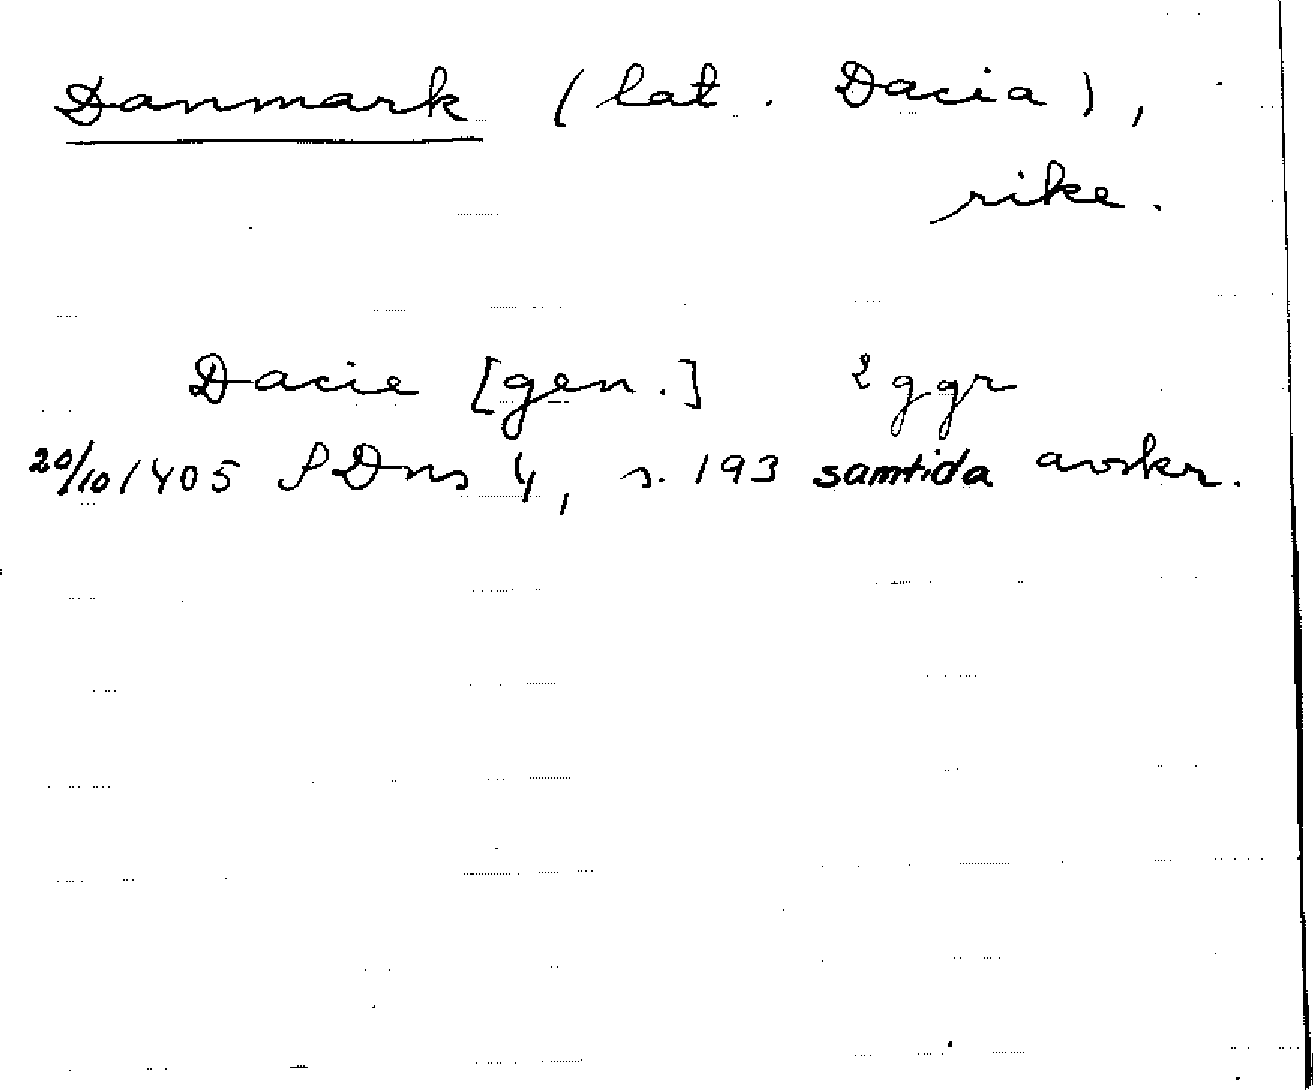 Danmark (lat. Dacia),
rike.
Dacie [gen.] 2 ggr
20/10 1405 SDns 4, s. 193 samtida avskr.